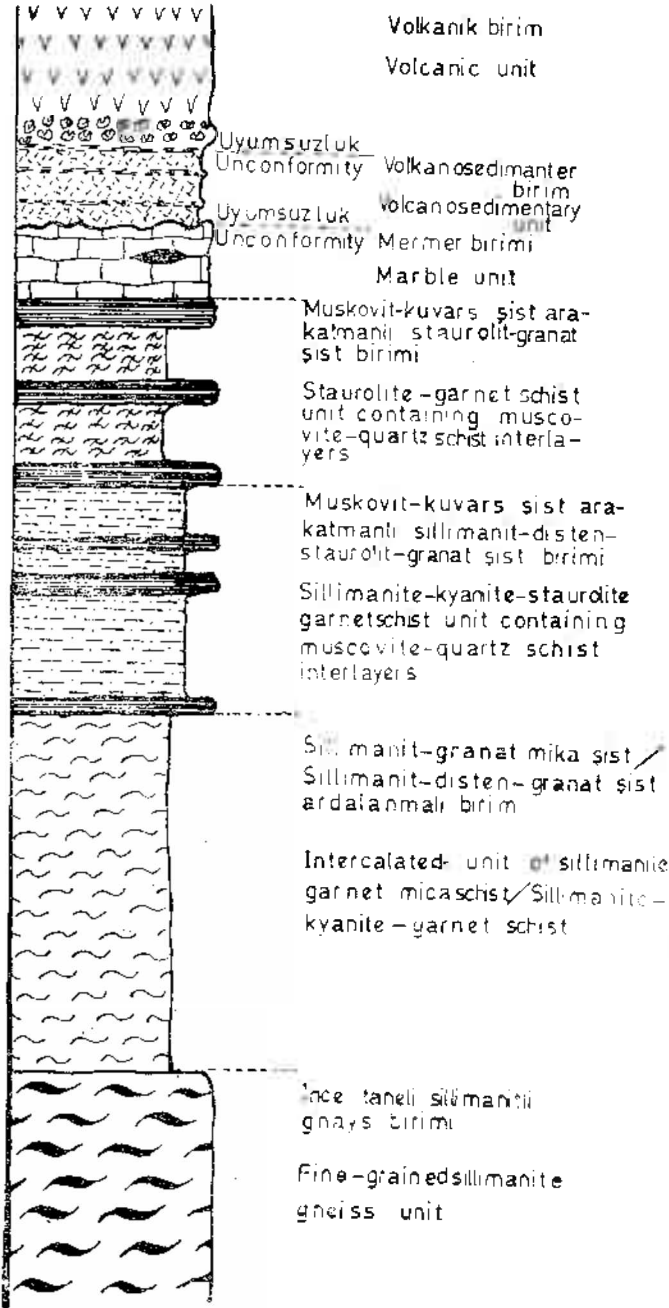 Volkanik birim
Volcanic unit
Uyumsuzluk
Unconformity
Volkanosedimanter
birim
Uyumsuzluk
Volcanosedimentary
unit
Unconformity
Mermer birimi
Marble unit
Muskovit-kuvars şist ara-
katmanlı staurolit-granat
şist birimi
Staurolite-garnet schist
unit containing musco-
vite-quartz schist interla-
yers
Muskovit-kuvars şist ara-
katmanlı sillimanit-disten-
staurolit-granat şist birimi
Sillimanite-kyanite-staurolite
garnetschist unit containing
muscovite-quartz schist
interlayers
Sillimanit-granat mika şist/
Sillimanit-disten-granat şist
ardalanmalı birim
Intercalated- unit of sillimanite
garnet micaschist/Sillimanite-
kyanite-garnet schist
İnce taneli sillimanitli
gnays birimi
Fine-grained sillimanite
gneiss unit